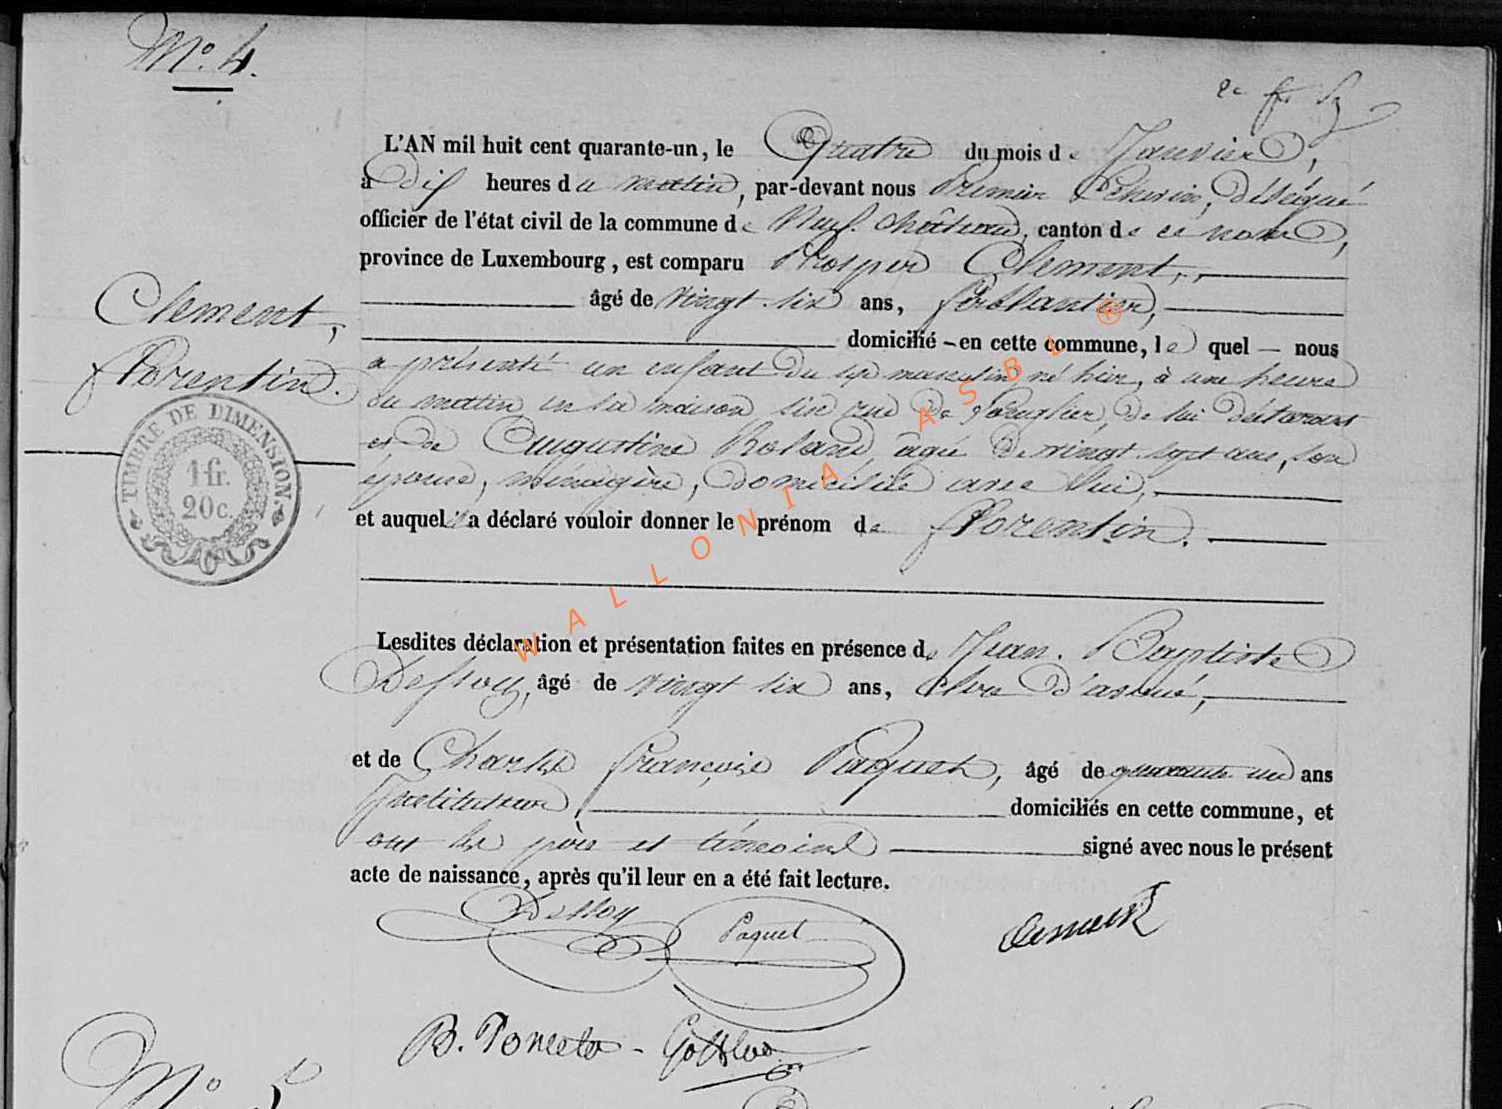 N.o 4.
L'AN mil huit cent quarante-un, le Quatre du mois de Janvier,
à dix heures du matin, par-devant nous Premier Echevin, délégué
officier de l'état civil de la commune de Neufchâteau, canton de ce nom,
province de Luxembourg, est comparu Prosper Clement,
âgé de vingt six ans, ferblantier,
domicilié en cette commune, le quel nous
a présenté un enfant du sexe masculin, né hier, à une heure
du matin en sa maison sise rue de, de lui déclarant
et de Augustine Roland, âgée de vingt sept ans, son
épouse, ménagère, domiciliée avec lui,
et auquel il a déclaré vouloir donner le prénom de Florentin.
Clement,
Florentin.
TIMBRE DE DIMENSION.
1 fr.
20 c.
Lesdites déclaration et présentation faites en présence de Jean-Baptiste
Dessoy, âgé de vingt six ans, clerc d'avoué,
et de Charles François Paquet, âgé de quarante un ans
Instituteur domiciliés en cette commune, et
ont les père et témoins signé avec nous le présent
acte de naissance, après qu'il leur en a été fait lecture.
Dessoy
Paquet
Clement
B. Poncelet - 
N.o 5
WALLONIA ASBL ®